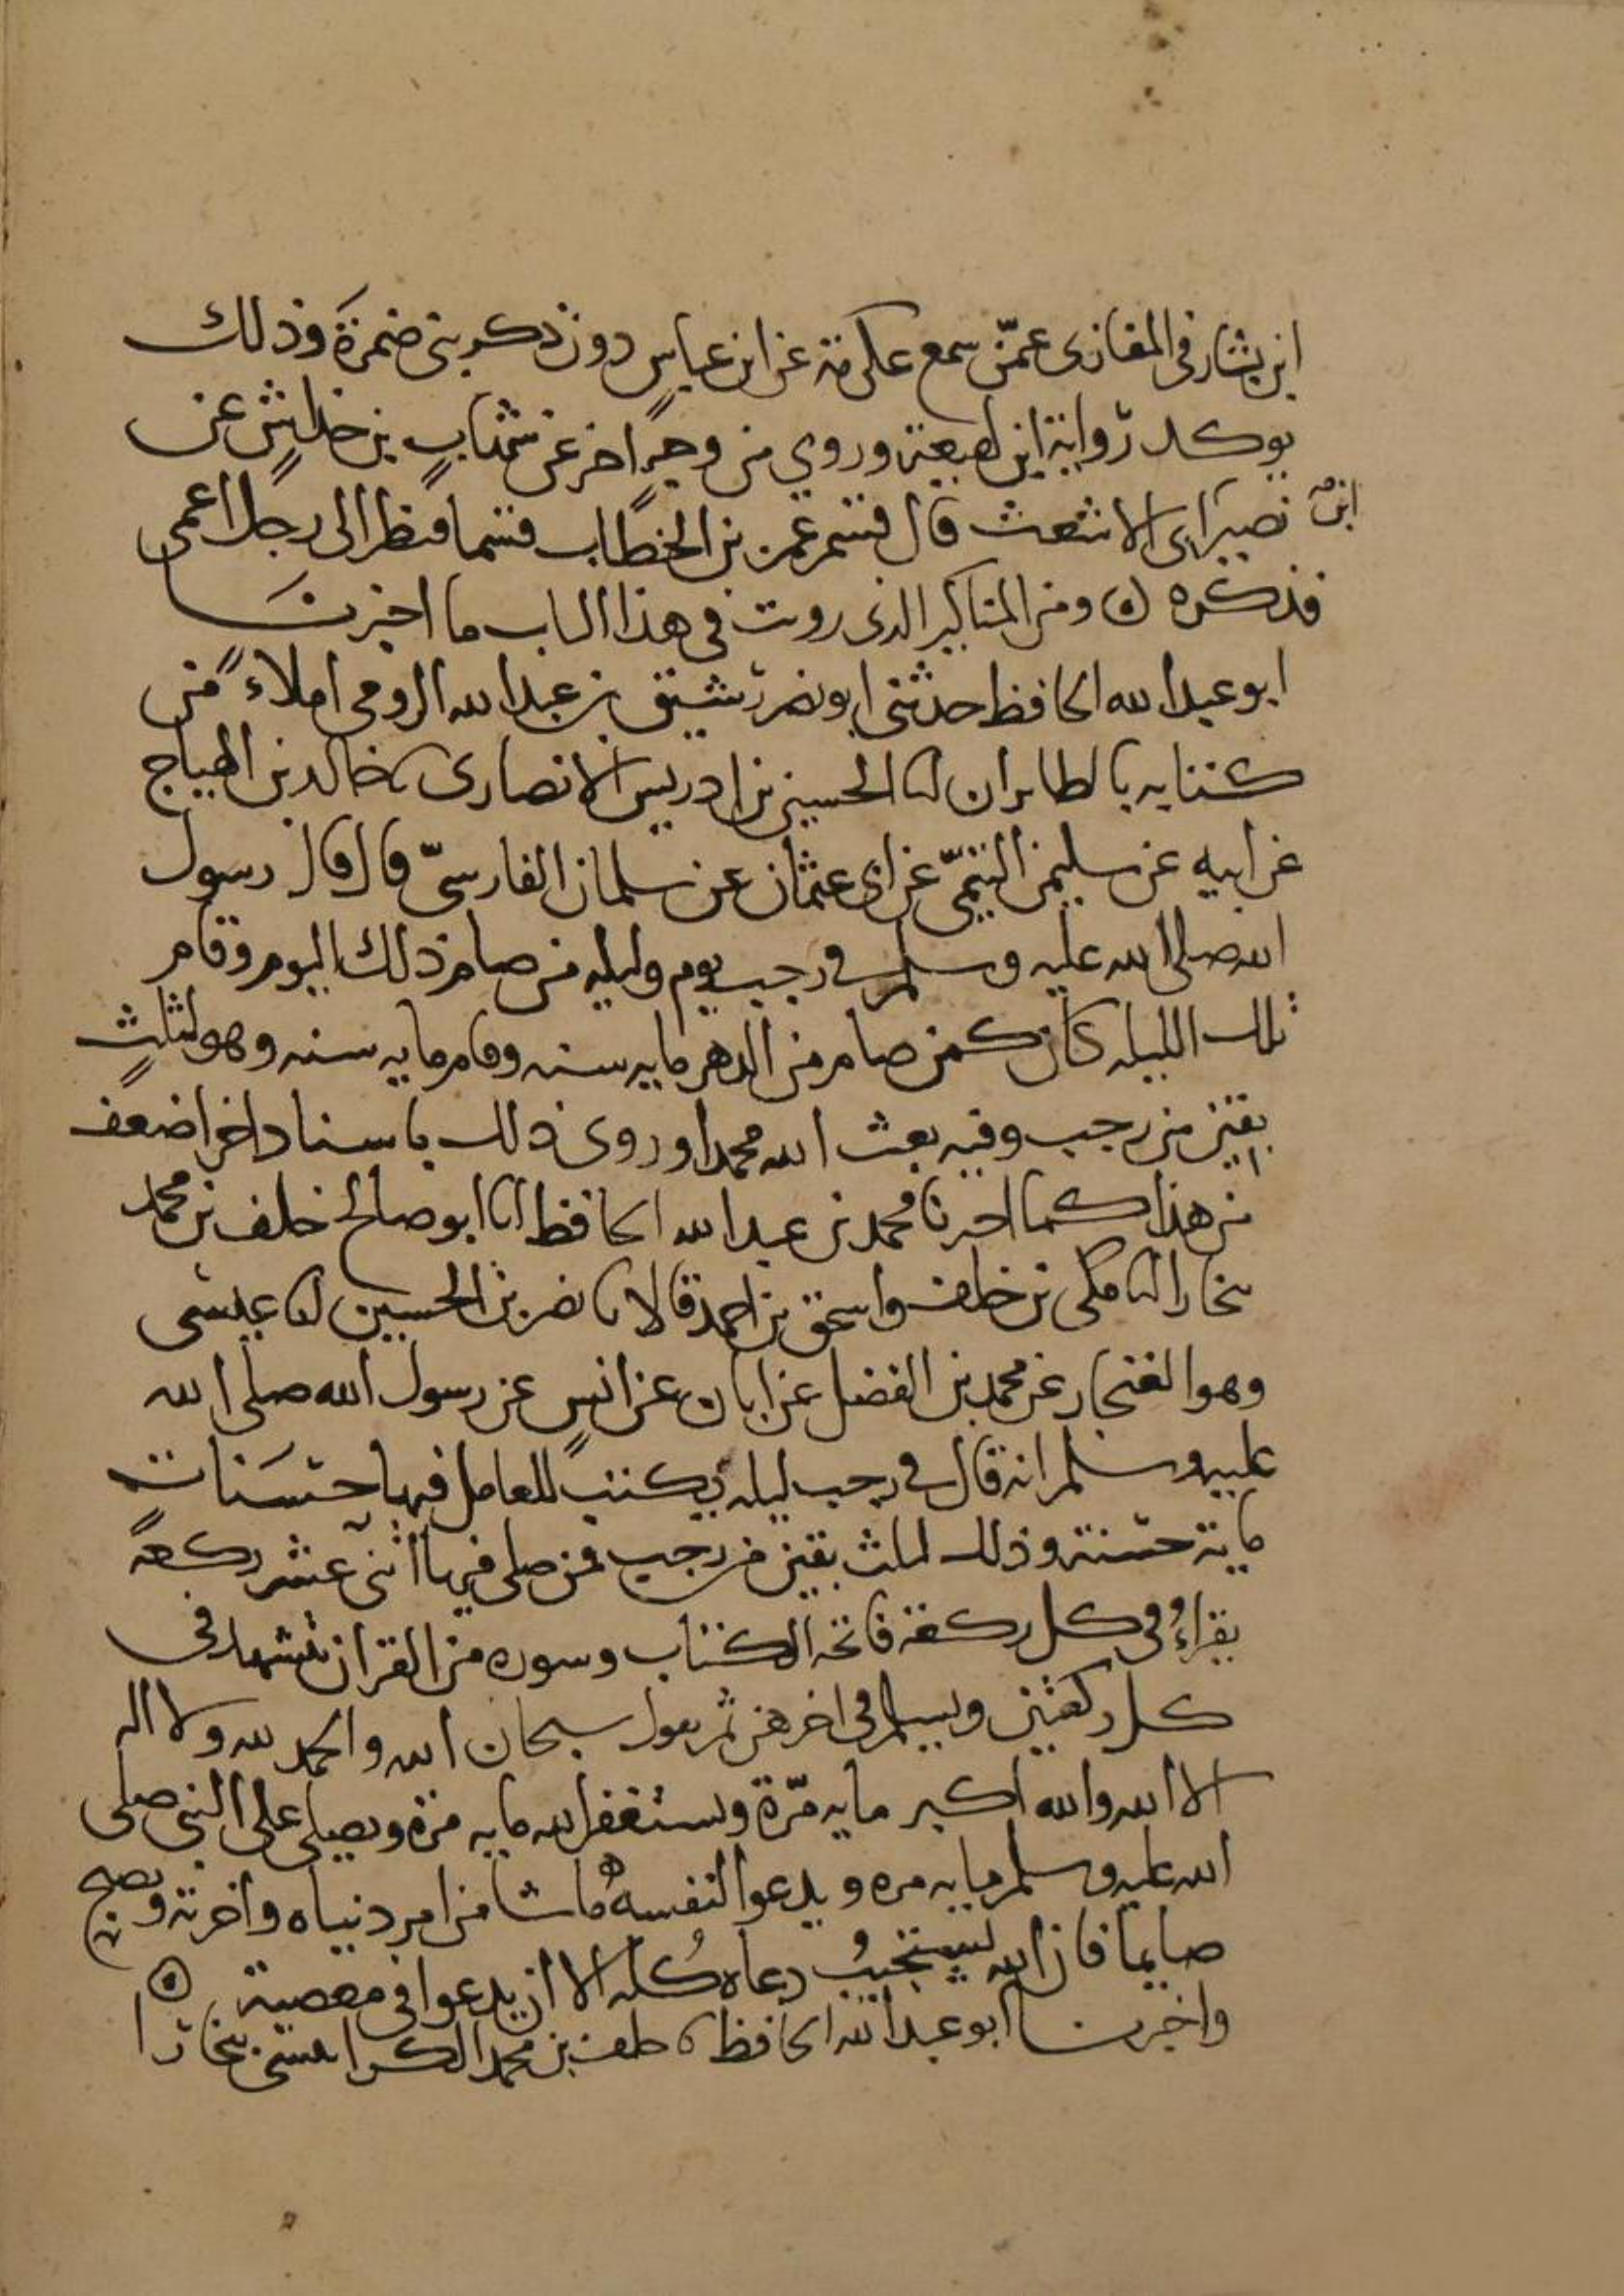 ابن يشار في المغازى عمّن سمع عكرمة عن ابن عباس دون ذكر بني ضمرة وذلك
يوكد رواية ابن لهيعة وروي من وجهٍ اخر عن شهاب بن خراش عن
ابن نصير ابى الاشعث قال قسم عمر بن الخطاب قسما فنظر الى رجل اعمى
فذكره ٥ ومن المناكير الذى رويت فى هذا الباب ما اخبرنا
ابو عبد الله الحافظ حدثني ابو نصر رشيق بن عبد الله الرومي املاءً من
كتابه بالطابران انا الحسين بن ادريس الانصارى نا خالد بن الهياج
عن ابيه عن سليمن التيميّ عن ابى عثمان عن سلمان الفارسيّ قال قال رسول
الله صلى الله عليه وسلم في رجب يوم وليله من صام ذلك اليوم وقام
تلك الليله كان كمن صام من الدهر مايه سنه وقام مايه سنه وهو لثلثٍ
بقين من رجب وفيه بعث الله محمدا وروى ذلك باسناد اخر اضعف
من هذا كما اخبرنا محمد بن عبد الله الحافظ انا ابو صالح خلف بن محمد
ببخارا انا مكى بن خلف واسحق بن احمد قالا نا نصر بن الحسين انا عيسى
وهو الغنجار عن محمد بن الفضل عن ابان عن انس عن رسول الله صلى الله
عليه وسلم انه قال في رجب ليله يكتب للعامل فيها حسنات
ماية حسنة وذلك لثلث بقين من رجب فمن صلى فيها اثنى عشر ركعةً
يقراءُ في كل ركعة فاتحه الكتاب وسوره من القران يتشهد في
كل ركعتين ويسلم في اخرهن ثم يقول سبحان الله والحمد لله ولا اله
الا الله والله اكبر مايه مرّة ويستغفر الله مايه مرة ويصلي على النبي صلى
الله عليه وسلم مايه مره ويدعوا لنفسه ما شا من امر دنياه واخرته ويصبح
صايما فان الله يستجيبُ دعاه كُله الا ان يدعوا في معصية ٥
واخبرنا ابو عبد الله الحافظ نا خلف بن محمد الكرابيسى ببخارا